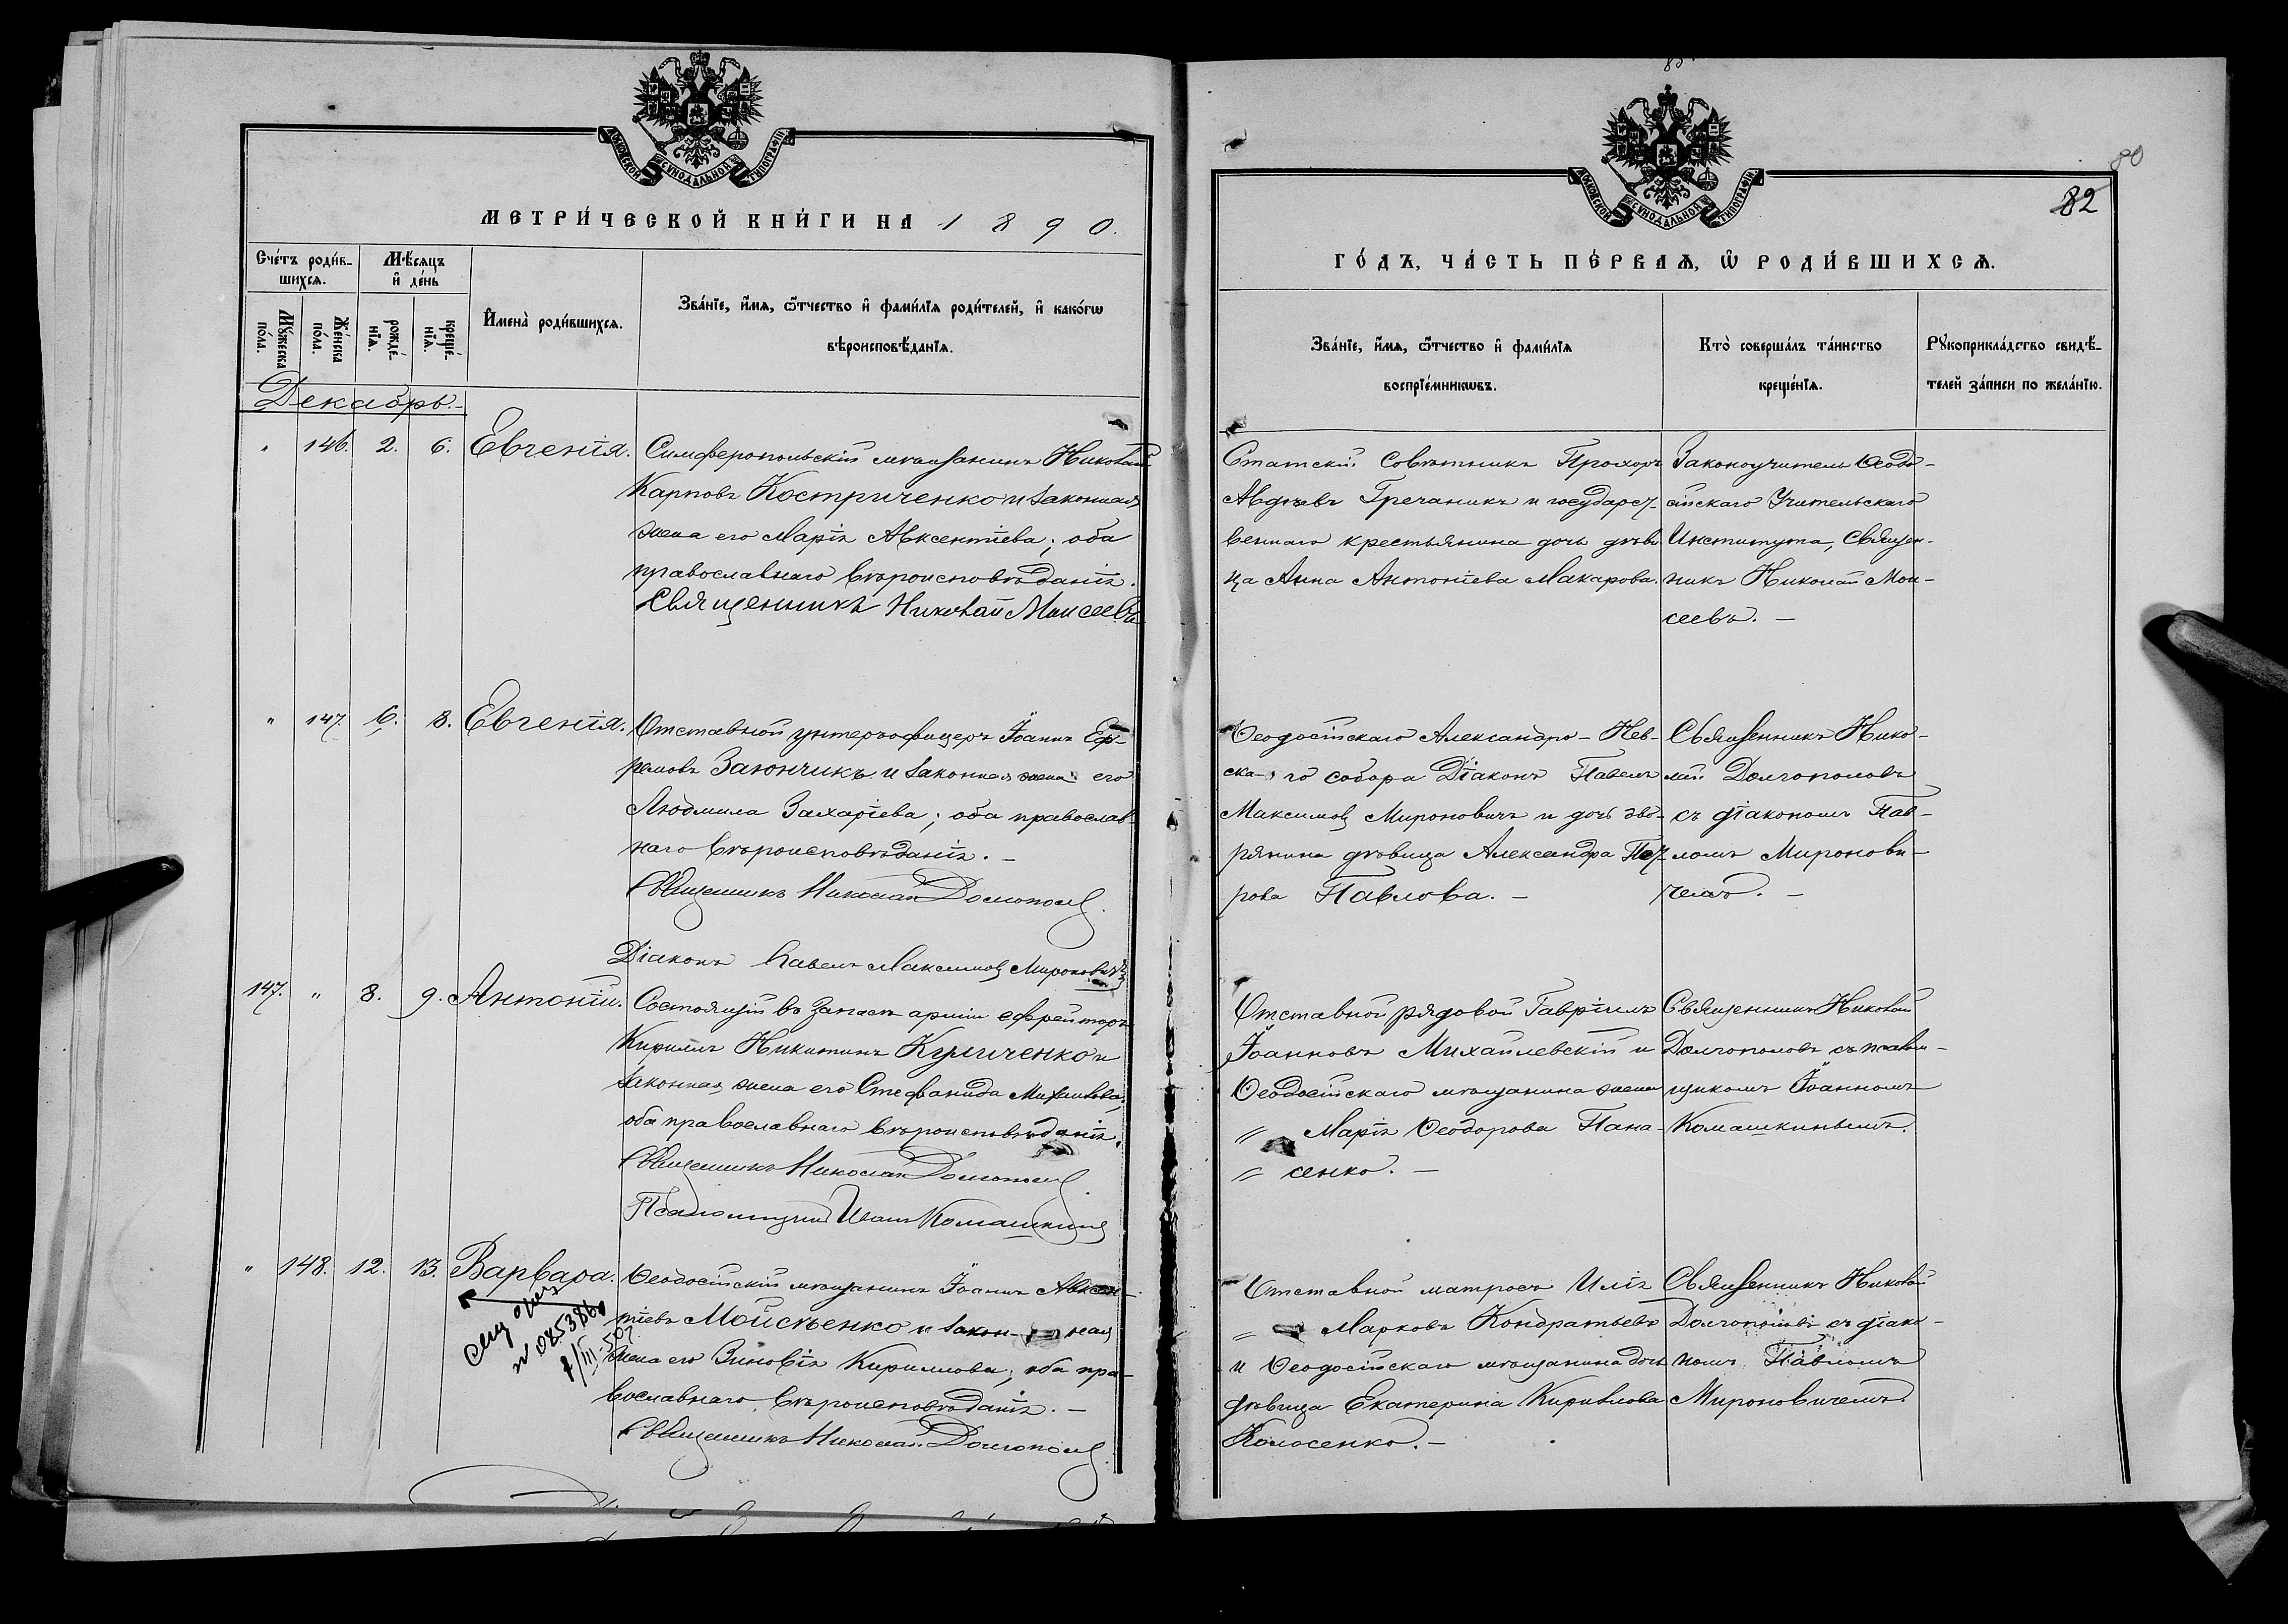 МОСКОВСКОЙ СѴНОДАЛЬНОЙ ТИПОГРАФІИ
МЕТРИ́ЧЕСКОЙ КНИ́ГИ НА 1890.
Сче́тъ роди́в-
шихсѧ.
Мѣ́сѧцъ
и҆ де́нь
Мꙋ́жеска
по́ла.
Же́нска
по́ла.
рожде́-
нїѧ.
креще́-
нїѧ.
И҆мена̀ роди́вшихсѧ.
Зва́нїе, и҆́мѧ, ѻ҆́тчество и҆ фами́лїѧ роди́телей, и҆ како́гѡ
вѣроисповѣ́данїѧ.
Декабрь.-
" 146. 2. 6. Евгенія.
Симферопольскій мѣщанинъ Николай
Карповъ Костриченко и законная
жена его Марія Авксентіева; оба
православнаго вѣроисповѣданія.
Священникъ Николай Моисеевъ
" 147. 6. 8. Евгенія.
Отставной унтеръ офицеръ Іоаннъ Еф-
ремовъ Заюнчикъ и законная жена его
Людмила Захаріева; оба православ-
наго вѣроисповѣданія. -
Священникъ Николай Долгополовъ
Діаконъ Павелъ Максимовъ Мироновичъ
147. " 8. 9. Антоній.
Состоящій въ запасѣ арміи ефрейторъ
Кириллъ Никитинъ Куличенко и
законная жена его Стефанида Михайлова,
оба православнаго вѣроисповѣданія.
Священникъ Николай Долгополовъ
Псаломщикъ Иванъ Комашкинъ
" 148. 12. 13. Варвара.
Ѳеодосійскій мѣщанинъ Іоаннъ Авксен-
тіевъ Мойсѣенко и закон-ная
жена его Зиновія Кириллова; оба пра-
вославнаго вѣроисповѣданія. -
Священникъ Николай Долгополовъ
№ 085386
82
80
МОСКОВСКОЙ СѴНОДАЛЬНОЙ ТИПОГРАФІИ
ГО́ДЪ, ЧА́СТЬ ПЕ́РВАѦ, Ѡ҆ РОДИ́ВШИХСѦ.
Зва́нїе, и҆́мѧ, ѻ҆́тчество и҆ фами́лїѧ
воспрїе́мникѡвъ.
Кто̀ соверша́лъ та́инство
креще́нїѧ.
Рꙋкоприкла́дство свидѣ́-
телей за́писи по жела́нїю.
Статскій Совѣтникъ Прохоръ
Авдѣевъ Гречаникъ и государст-
веннаго крестьянина дочь дѣви-
ца Анна Антоніева Макарова.
Законоучитель Ѳеодо-
сійскаго Учительскаго
Института, Священ-
никъ Николай Мои-
сеевъ. -
Ѳеодосійскаго Александро-Нев-
ска-го собора Діаконъ Павелъ
Максимовъ Мироновичъ и дочь дво-
рянина дѣвица Александра Пет-
рова Павлова. -
Священникъ Нико-
лай Долгополовъ
съ діакономъ Пав-
ломъ Миронови-
чемъ. -
Отставной рядовой Гавріилъ
Іоанновъ Михайлевскій и
Ѳеодосійскаго мѣщанина жена
" Марія Ѳеодорова Пана-
" сенко. -
Священникъ Николай
Долгополовъ съ псалом-
щикомъ Іоанномъ
Комашкинымъ.
Отставной матросъ Илія
" Марковъ Кондратьевъ
и Ѳеодосійскаго мѣщанина дочь
дѣвица Екатерина Кириллова
Колосенко. -
Священникъ Николай
Долгополовъ съ діако-
номъ Павломъ
Мироновичемъ.